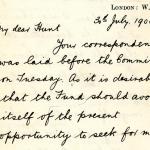 LONDON: W.
July, 190
My dear Hunt
Your corresponden
was laid before the Commi
on Tuesday. As it is desirab
that the Fund should avo
itself of the present
opportunity to seek for m